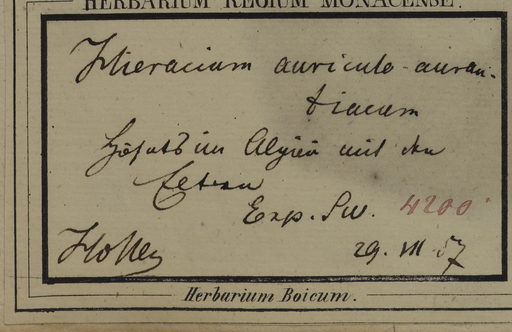 HERBARIUM REGIUM MONACENSE.
Hieracium auricula-auran-
tiacum
Höfats im Algäu mit den
Eltern
Exp. Sw. 4200'
Holler
29. VII. 57
Herbarium Boicum.